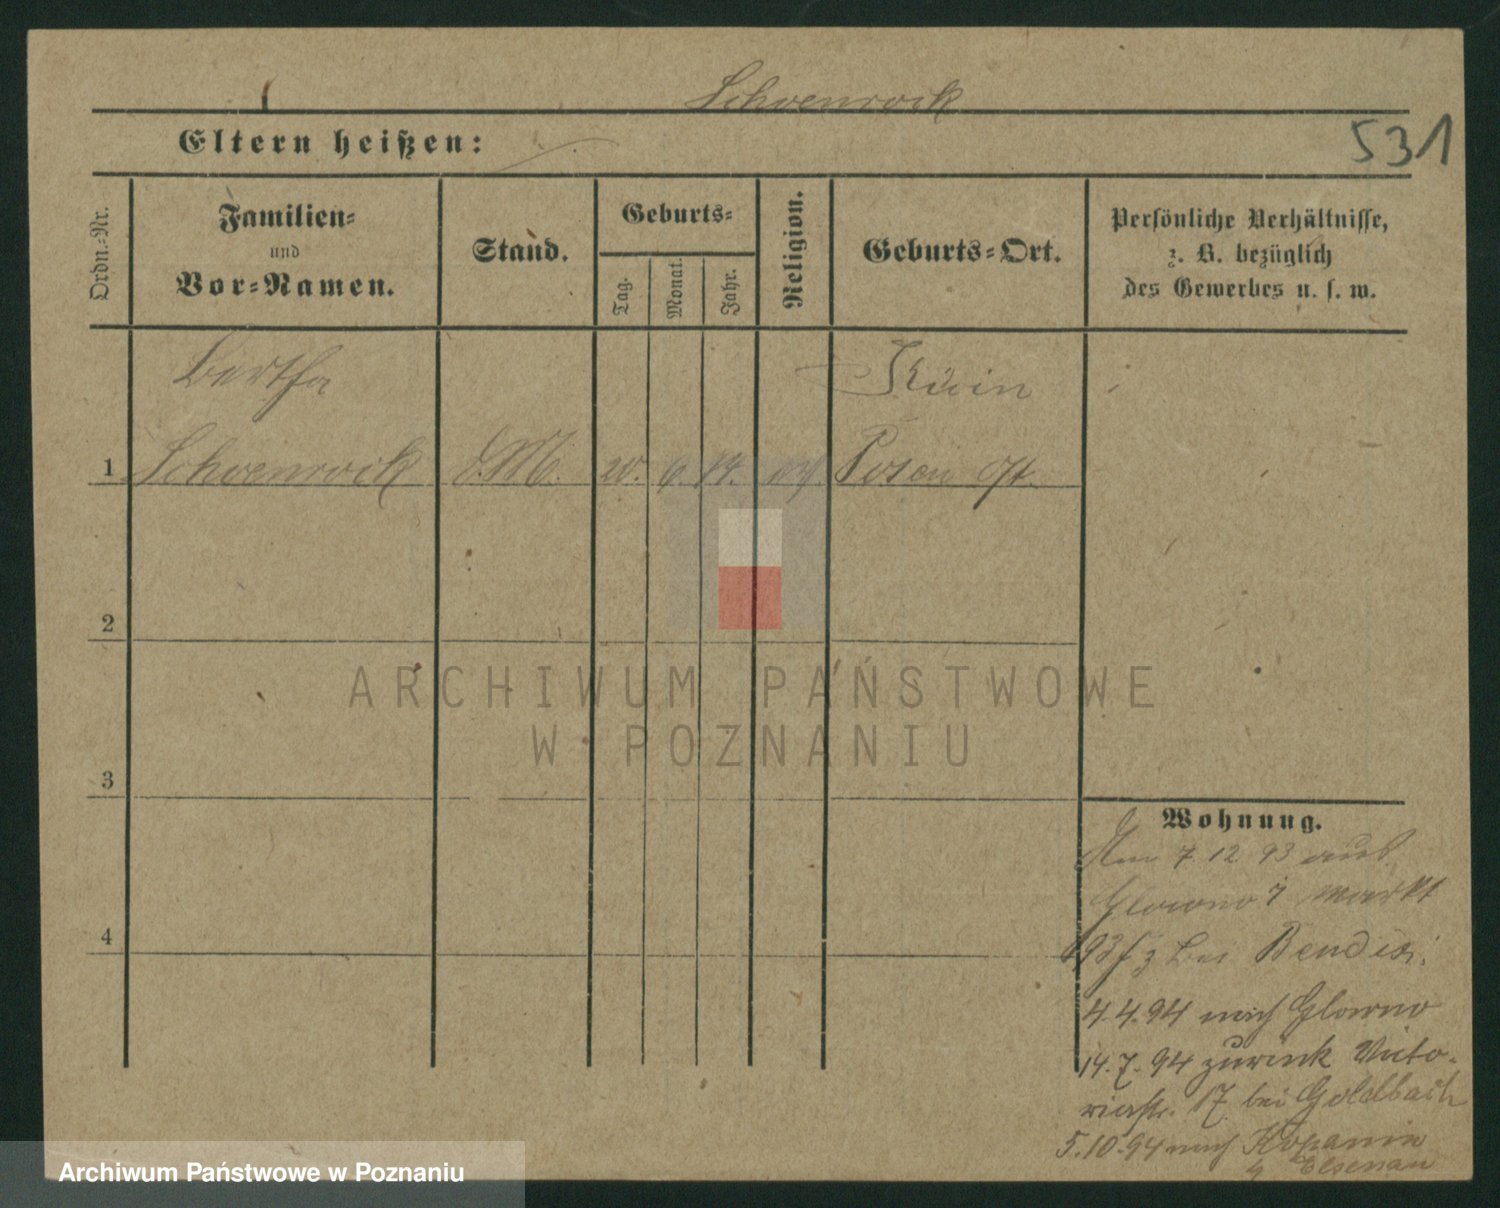 Schoenrock
Eltern heißen:
531
Ordn.-Nr.
Familien-
und
Vor-Namen.
Stand.
Geburts-
Tag.
Monat.
Jahr.
Religion.
Geburts-Ort.
Persönliche Verhältnisse,
z. B. bezüglich
des Gewerbes u. s. w.
Bertha
1 Schoenrock d. M. 20. 6. Posen Ost.
2
3
4
ARCHIWUM PAŃSTWOWE
W POZNANIU
Wohnung.
Am 7 12 93 aus
Glowno markt
bei
4.4.94 nach Glowno
14.7.94 zurück Victo-
riastr. 17 bei Goldbach
5.10.94 nach Kopanin
Elsenau
Archiwum Państwowe w Poznaniu